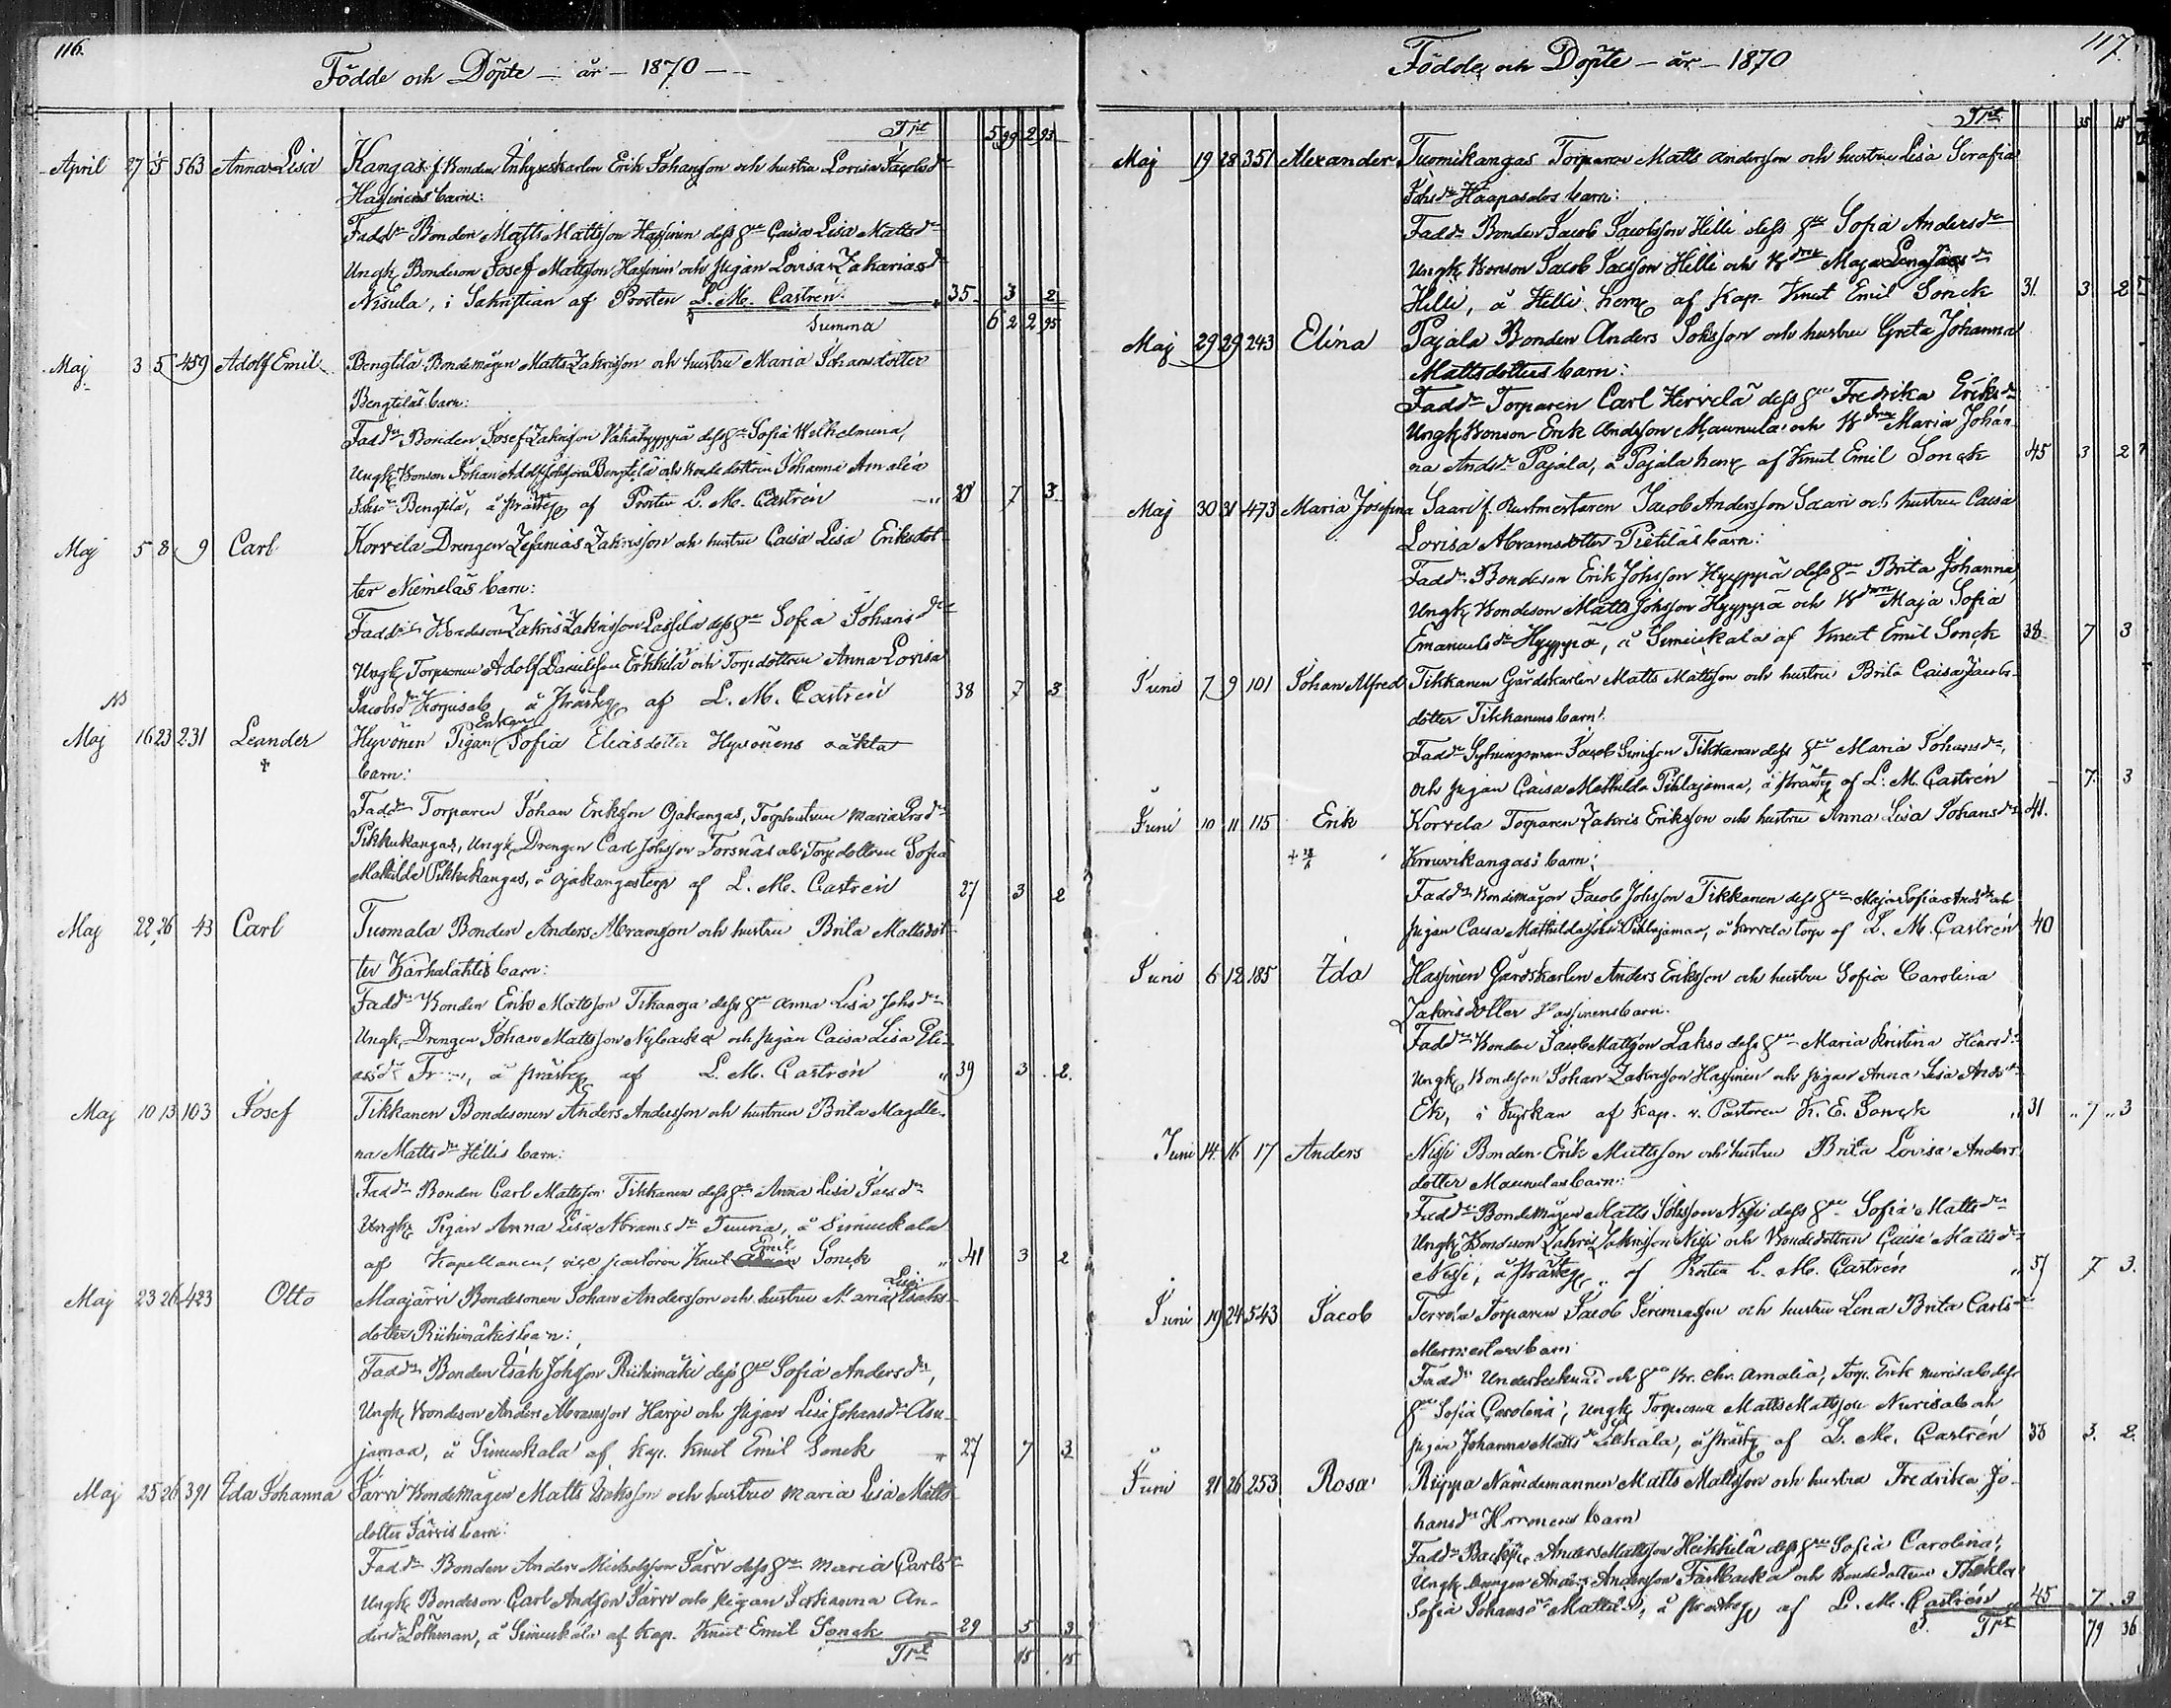 116.
Födde och Döpte - år - 1870 - -
Trt 5 99 2 93
April 27 563 Anna Lisa Kangas f. Bonden Inhyseskarlen Erik Johansson och hustru Lovisa Jacobsdr
Hassinens barn:
Faddr Bonden Matts Mattsson Hassinen dess hu Caisa Lisa Mattsdr
Ungk Bondeson Josef Mattsson Hassinen och pigan Lovisa Zachariasdr
Nisula, i Sakristian af Prosten L. M. Castrén 35 3 2
Summa 6 2 2 95
Maj 3 5 459 Adolf Emil Bengtilä Bondemågen Matts Zakrisson och hustru Maria Johansdotter
Bengtiläs barn:
Faddr Bonden Josef Zakrisson Vähähyyppä dess hu Sofia Wilhelmina,
Ungk Bonson Johan Adolf Johsson Bengtilä och bondedottren Johanna Amalia
Johsdr Bengtilä, å prästg af Prosten L. M. Castrén 7 3
Maj 5 8 9 Carl Korvela Drengen Zefanias Zakrisson och hustru Caisa Lisa Eriksdot-
ter Niemeläs barn:
Faddr Bondeson Zakris Zakrisson Lassila dess hu Sofia Johansdr
Ungk Torparson Adolf Danielsson Erkkilä och Torpdottren Anna Lovisa
Jacobsdr Korpisalo å prästg af L. M. Castrén 38 7 3
Maj 16 23 231 Leander Hyvönen Pigan Enkan Sofia Eliasdotter Hyvönens oäkta
† barn:
Faddr Torparen Johan Eriksson Ojakangas, Torphustrun Maria
Pikkukangas, Ungk Drengen Carl Johsson Forsnäs och Torpdottren Sofia
Mathilda Pikkukangas, å Ojakangas torp af L. M. Castrén 27 3 2
Maj 22 26 43 Carl Tuomala Bonden Anders Abramsson och hustru Brita Mattsdot-
ter Karhulahtis barn:
Faddr Bonden Erik Mattsson dess hu Anna Lisa Johsdr
Ungk Drengen Johan Mattsson Nybacka och pigan Caisa Lisa Eli-
asdr å prästg af L. M. Castrén 39 3 2
Maj 10 13 103 Josef Tikkanen Bondesonen Anders Andersson och hustrun Brita Magdle-
na Mattsdr Hillis barn:
Faddr Bonden Carl Mattsson Tikkanen dess hu Anna Lisa
Ungk Pigan Anna Lisa Abramsdr å Simuskala
af Kapellanen, vice pastoren Knut Emil Sonck 41 3 2
Maj 23 26 423 Otto Maajärvi Bondesonen Johan Andersson och hustru Maria Lisa Isaks-
dotter Riihimäkis barn:
Faddr Bonden Isak Johsson Riihimäki dess hu Sofia Andersdr,
Ungk Bondeson Anders Abramsson Harju och pigan Lisa Johansdr Asu-
jamaa, å Simuskala af Kap. Knut Emil Sonck 27 7 3
Maj 25 26 391 Ida Johanna Järvi Bondemågen Matts Isaksson och hustru Maria Lisa Matts-
dotter Järvis barn:
Faddr Bonden Anders Michelsson Järvi dess hu Maria Carlsdr
Ungk Bondeson Carl Andsson Järvi och pigan Johanna An-
dersdr Löthman, å Simuskala af Kap. Knut Emil Sonck 29 5 3
Trt 15 15
117.
Födde och Döpte - år - 1870
Trt 35 15
Maj 19 28 351 Alexander Tuomikangas Torparen Matts Andersson och hustru Lisa Serafia
Johsdr Haapasalos barn:
Faddr Bonden Jacob Jacobsson Hilli dess hu Sofia Andersdr
Ungk Bonson Jacob Jacsson Hilli och Bdrn Maja Lena Jacsdr
Hilli, å Hilli hem af Kap. Knut Emil Sonck 31 3 2
Maj 29 29 243 Elina Pajala Bonden Anders Isaksson och hustru Greta Johanna
Mattsdotters barn:
Faddr Torparen Carl Hirvelä dess hu Fredrika Eriksdr
Ungk Bonson Erik Andsson Maunula och Bdrn Maria Johan-
na Andsdr Pajala, å Pajala hem af Knut Emil Sonck 45 3 2
Maj 30 31 473 Maria Josefina Saari f. Rustmästaren Jacob Andersson Saari och hustru Caisa
Lovisa Abramsdotter Pietiläs barn:
Faddr Bondeson Erik Johsson Hyyppä dess hu Brita Johanna,
Ungk Bondeson Matts Johsson Hyyppä och Bdrn Maja Sofia
Emanuelsdr Hyyppä, å Simuskala af Knut Emil Sonck 38 7 3
Juni 7 9 101 Johan Alfred Tikkanen Gårdskarlen Matts Mattsson och hustru Brita Caisa Jacobs-
dotter Tikkanens barn:
Faddr Sytningsman Jacob Simsson Tikkanen dess hu Maria Johansdr,
och pigan Caisa Mathilda Pihlajamaa, å prästg af L. M. Castrén - 7 3
Juni 10 11 115 Erik Korvela Torparen Zakris Eriksson och hustru Anna Lisa Johansdr 41.
Krouvikangas's barn:
Faddr Bondemågen Jacob Johsson Tikkanen dess hu Maja Sofia Andsdr och
pigan Caisa Mathilda Pihlajamaa, å Korvela torp af L. M. Castrén 40
Juni 6 12 185 Ida Hassinen Gårdskarlen Anders Eriksson och hustru Sofia Carolina
Zakrisdotter Hassinens barn.
Faddr Bonden Jacob Mattsson Lakso dess hu Maria Kristina Henrsdr
Ungk Bondeson Johan Zakrisson Hassinen och pigan Anna Lisa Andsdr
Ek, i Kyrkan af Kap. v. Pastoren K. E. Sonck 31 7 3
Juni 14 16 17 Anders Nissi Bonden Erik Mattsson och hustru Brita Lovisa Anders-
dotter Maunulas barn:
Faddr Bondemågen Matts Johsson Nissi dess hu Sofia Mattsdr
Ungk Bondeson Zakris Zakrisson Nissi och Bondedottren Caisa Mattsdr
Nissi, å prästg af Prosten L. M. Castrén 7 3.
Juni 19 24 543 Jacob Torparen Jacob Jeremiasson och hustru Lena Brita Carlsdr
barn
Faddr och hu Amalia, Torp. Erik dess
hu Sofia Carolina, Ungk Torpsonen Matts Mattsson och
pigan Johanna Mattsdr å prästg af L. M. Castrén 3. 2.
Juni 21 26 253 Rosa Riippa Nämdemannen Matts Mattsson och hustru Fredrika Jo-
hansdr barn
Faddr Anders Mattsson Heikkilä dess hu Sofia Carolina,
Ungk Drengen Anders Andersson Färbacka och Bondedottren Thekla
Sofia Johansdr å prästg af L. M. Castrén 45 7 3
Trt 79 36